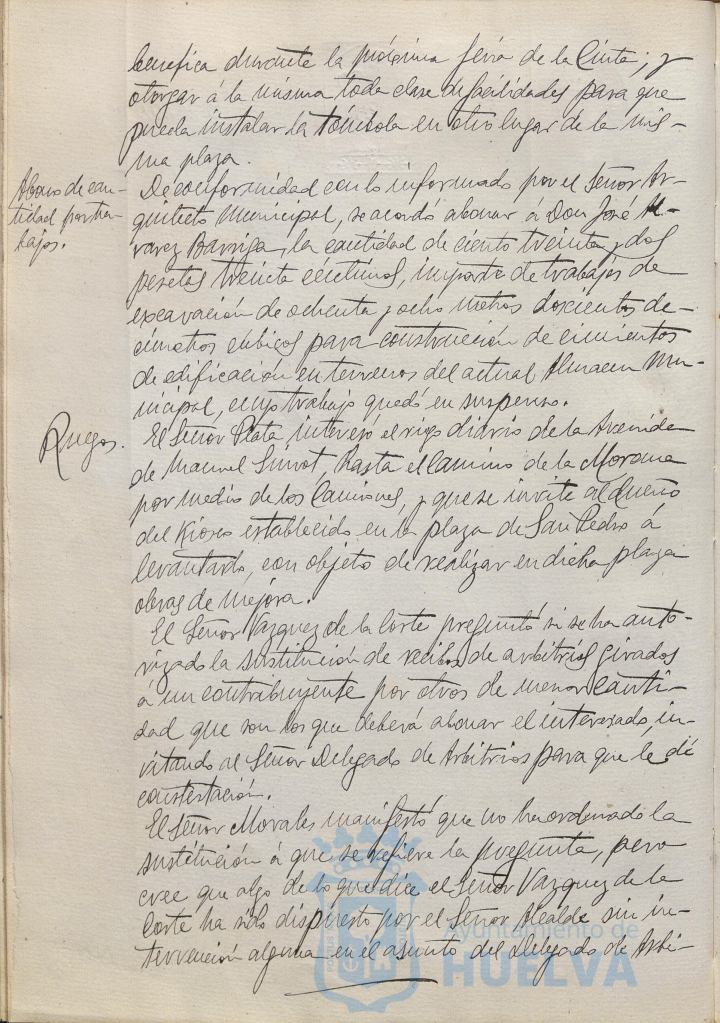 benefica durante la próxima feria de la Cinta; y
otorgar á la misma toda clase de facilidades para que
pueda instalar la tómbola en otro lugar de la mis-
ma plaza.
Abono de can-
tidad por tra-
bajos.
De conformidad con lo informado por el Señor Ar-
quitecto Municipal, se acordó abonar á Don José Al-
varez Barriga, la cantidad de ciento treinta y dos
pesetas treinta centimos, importe de trabajos de
excavación de ochenta y ocho metros doscientos de-
cimetros cúbicos para construcción de cimientos
de edificación en terrenos del actual Almacen Mu-
nicipal, cuyo trabajo quedó en suspenso.
Ruegos.
El Señor Plata interesó el riego diario de la Avenida
de Manuel Siurot, hasta el Camino de la Morana
por medio de los Camiones, y que se invite al dueño
del Kiosco establecido en la plaza de San Pedro á
levantarlo, con objeto de realizar en dicha plaza
obras de mejora.
El Señor Vazquez de la Corte preguntó si se ha auto-
rizado la sustitución de recibos de arbitrios girados
á un contribuyente por otros de menor canti-
dad que son los que deberá abonar el interesado, in-
vitando al Señor Delegado de Arbitrios para que le dé
contestación.
El Señor Morales manifestó que no ha ordenado la
sustitución á que se refiere la pregunta, pero
cree que algo de lo que dice el Señor Vazquez de la
Corte ha sido dispuesto por el Señor Alcalde sin in-
tervención alguna en el asunto del Delegado de Arbi-
Ayuntamiento de
HUELVA